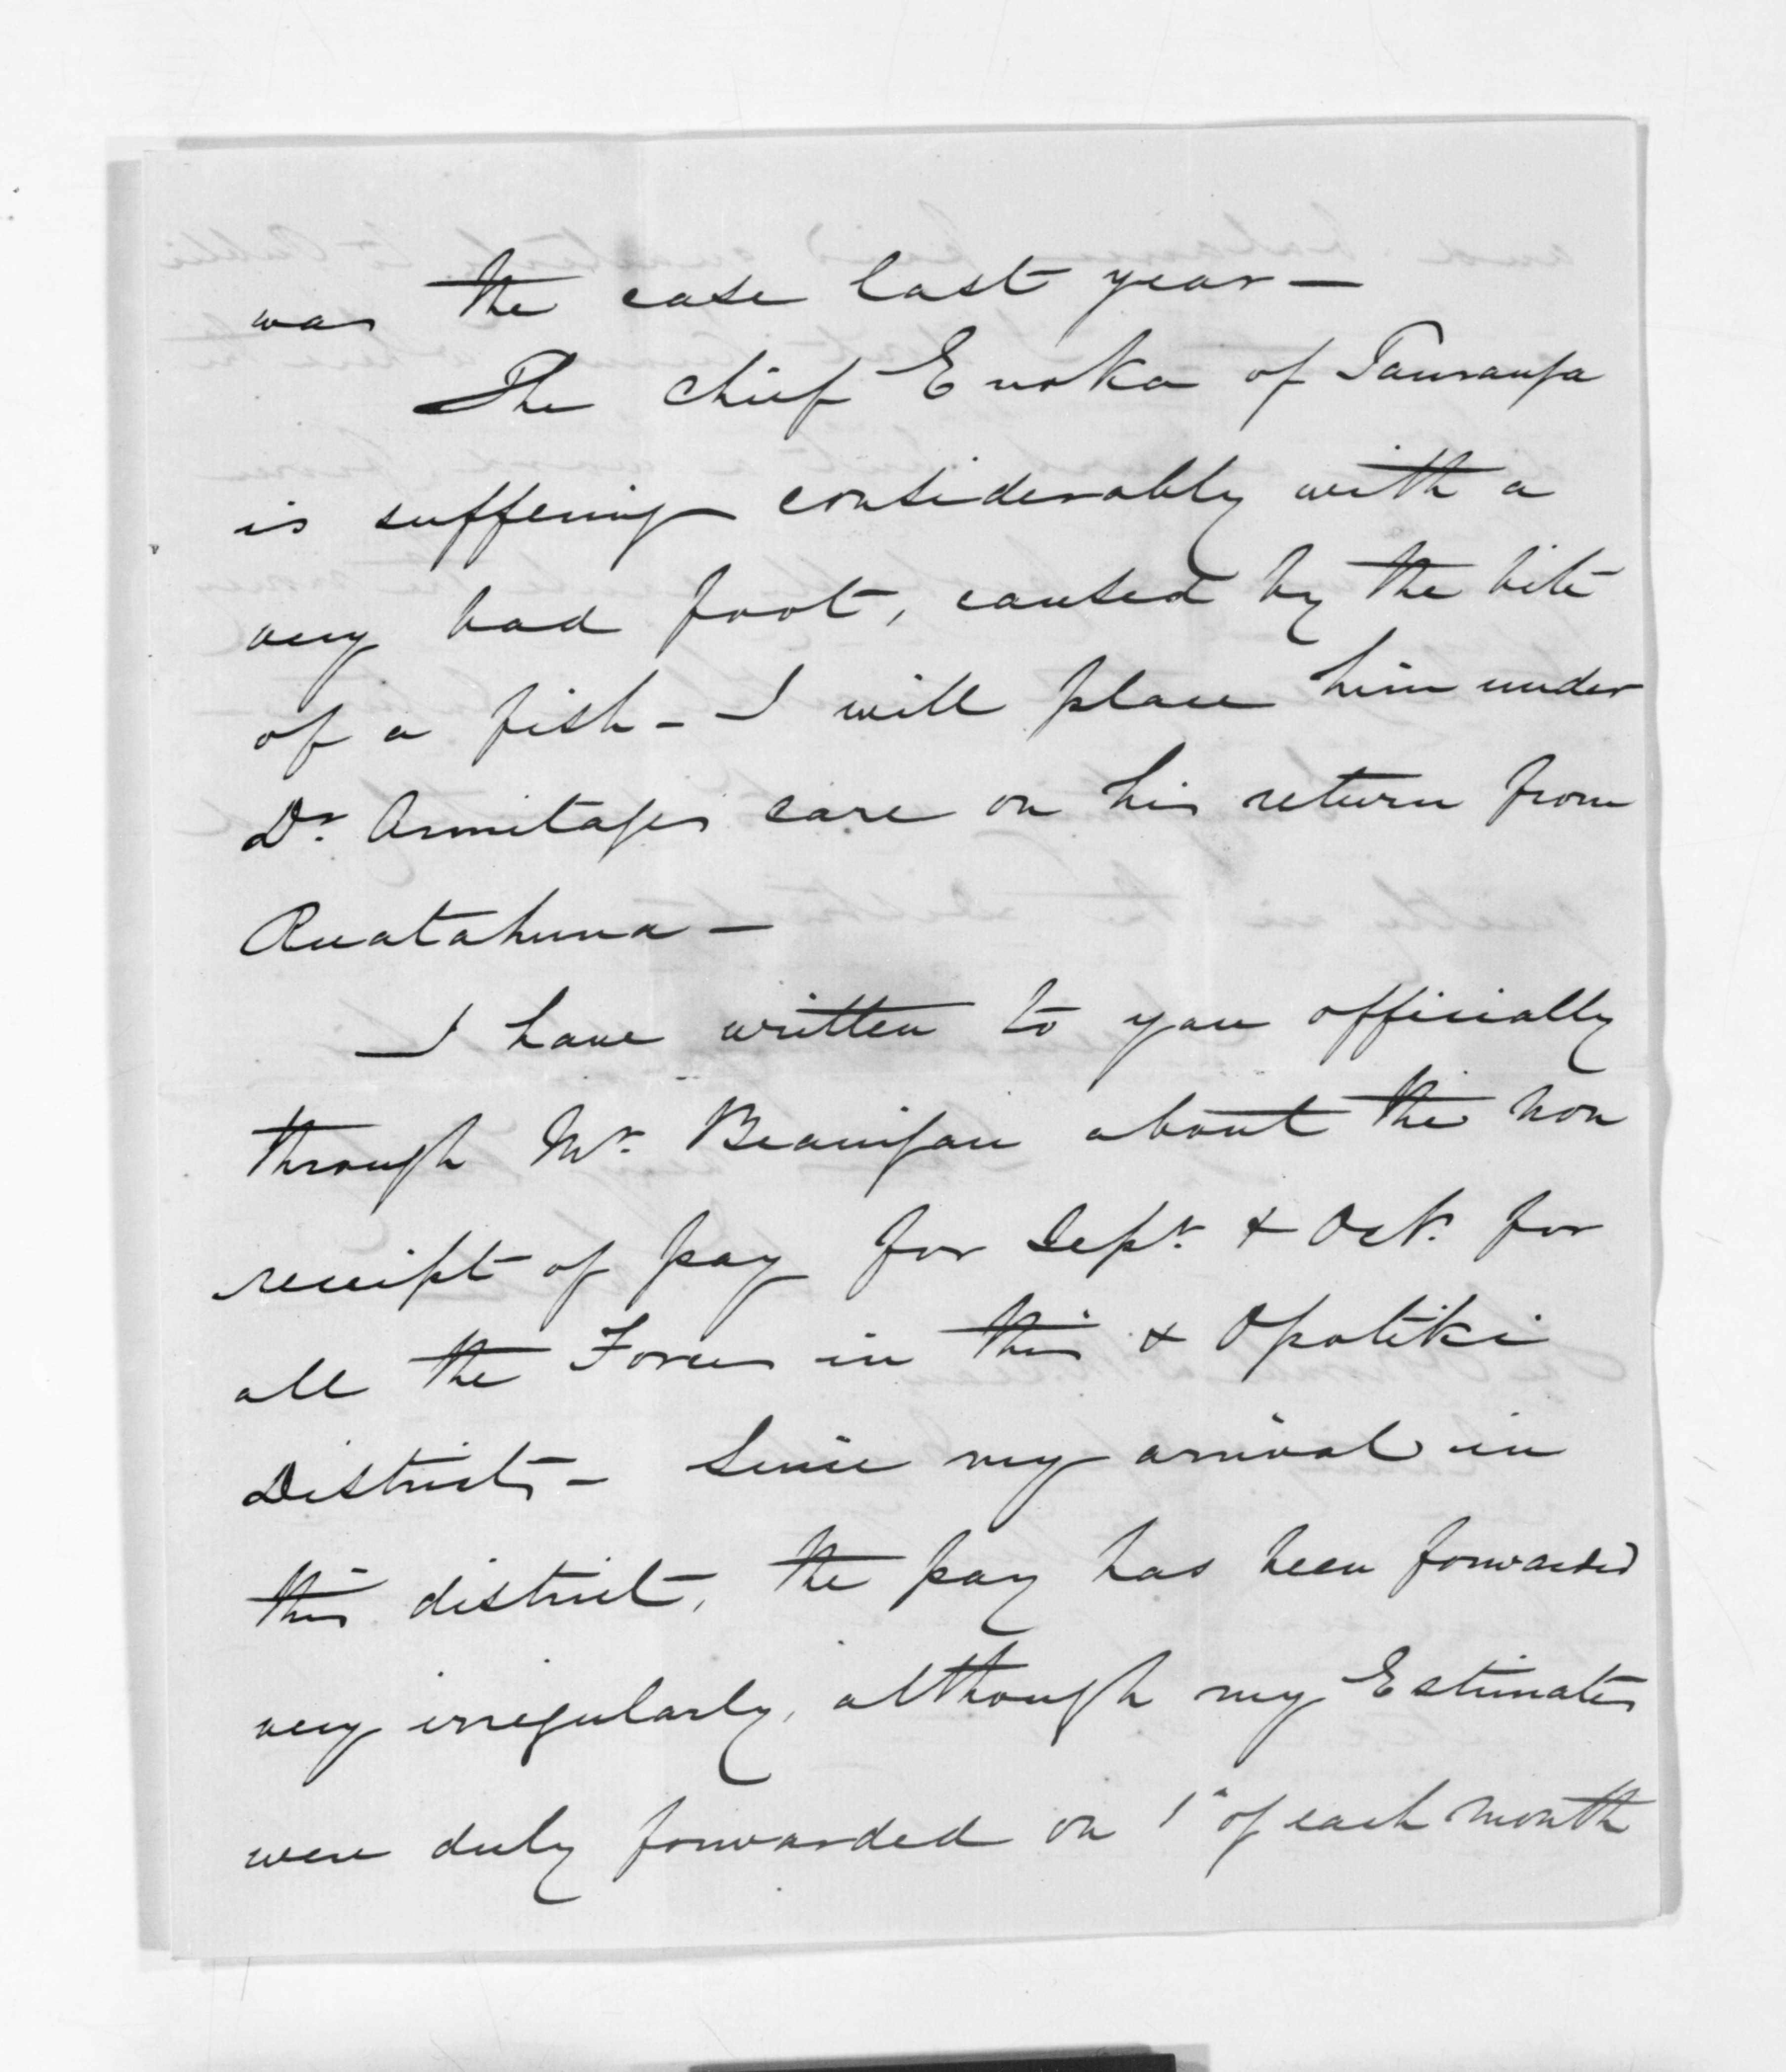 was the case last year —
The chief Enoka of Tauranga
is suffering considerably with a
very bad foot, caused by the bite
of a fish - I will place him under
Dr. Armitages care on his return from
Ruatahuna —
I have written to you officially
through Mr. Branigan about the non
receipt of pay for Sept. & Oct. for
all the Forces in this & Opotiki
Districts - Since my arrival in
this district, the pay has been forwarded
very irregularly, although my Estimates
were duly forwarded on 1st of each month